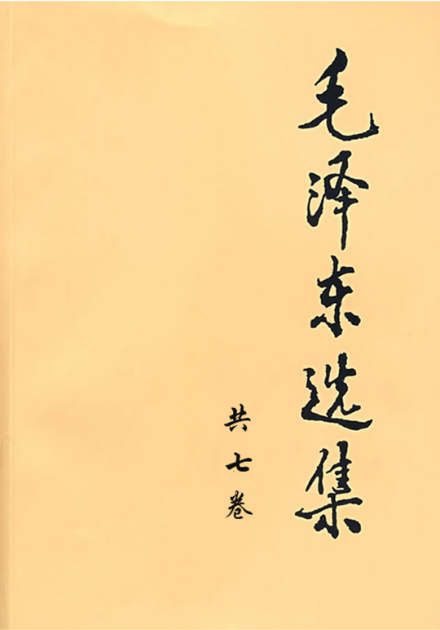 毛泽东选集
共七卷